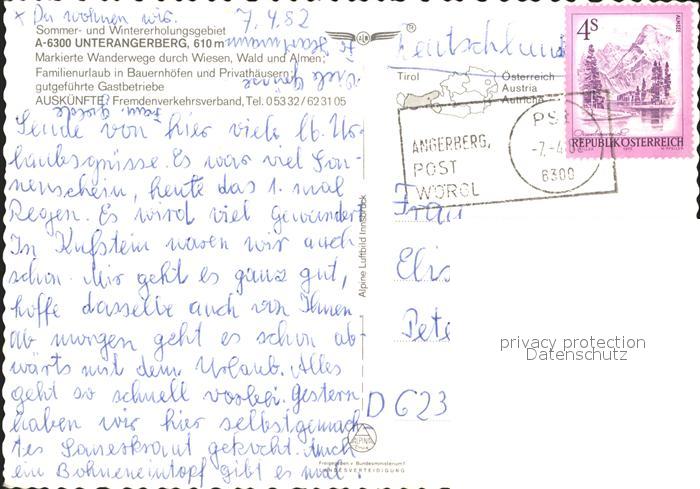 x Da wohnen wir. 7.4.82
Sommer- und Wintererholungsgebiet
A-6300 UNTERANGERBERG, 610 m
Markierte Wanderwege durch Wiesen, Wald und Almen;
Familienurlaub in Bauernhöfen und Privathäusern;
gutgeführte Gastbetriebe
AUSKÜNFTE: Fremdenverkehrsverband, Tel. 0 53 32 / 62 31 05
Viele Grüße
Sende von hier viele lb. Ur-
laubsgrüsse. Es war viel Son-
nenschein, heute das 1. mal
Regen. Es wird viel gewandert
In Kufstein waren wir auch
schon. Mir geht es ganz gut,
hoffe dasselbe auch von Ihnen
ab morgen geht es schon ab-
wärts mit dem Urlaub. Alles
geht so schnell vorbei. Gestern
haben wir hier selbstgemach-
tes Sauerkraut gekocht. Auch
ein Bohneneintopf gibt es mal.
Alpine Luftbild Innsbruck
ALPINE
Freigegeben v. Bundesministerium f.
LANDESVERTEIDIGUNG
Deutschland
Tirol
Österreich
Austria
Autriche
4S
ALMSEE
REPUBLIK ÖSTERREICH
ANGERBERG,
POST
WÖRGL
-7.-4
6300
Frau
Elis
Pete
D 623
privacy protection
Datenschutz